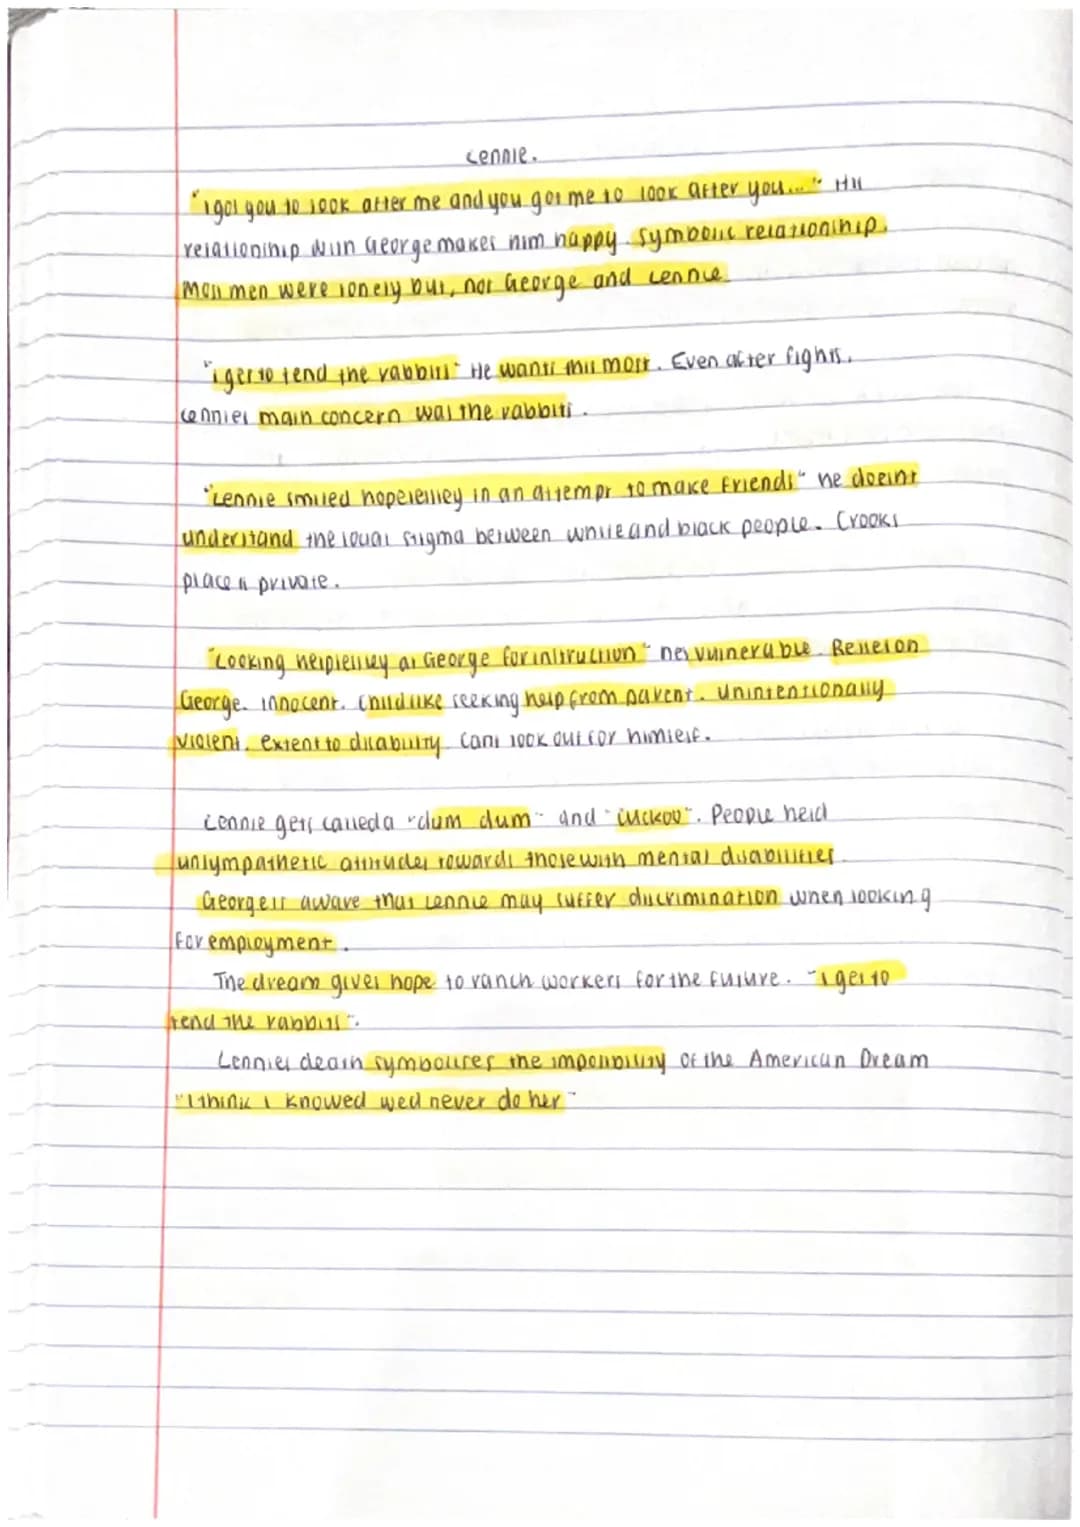 Lennie.
"i got you to look after me and you got me to look after you..." His
relationship with George makes him happy. Symbolic relationship.
Most men were lonely but, not George and Lennie.
"i get to tend the rabbits" He wants this most. Even after fights,
Lennies main concern was the rabbits.
"Lennie smiled hopelessley in an attempt to make friends" he doesnt
understand the social stigma between white and black people. Crooks
place is private.
"Looking helplessley at George for instruction" hes vulnerable. Relies on
George. innocent. Childlike seeking help from parent. Unintentionally
violent. extent to disability. Cant look out for himself.
Lennie gets called a "dum dum" and "cuckoo". People held
unsympathetic attitudes towards those with mental disabilities.
George is aware that Lennie may suffer discrimination when looking
for employment.
The dream gives hope to ranch workers for the future. "i get to
tend the rabbits".
Lennies death symbolises the impossibility of the American Dream
"I think I knowed wed never do her"